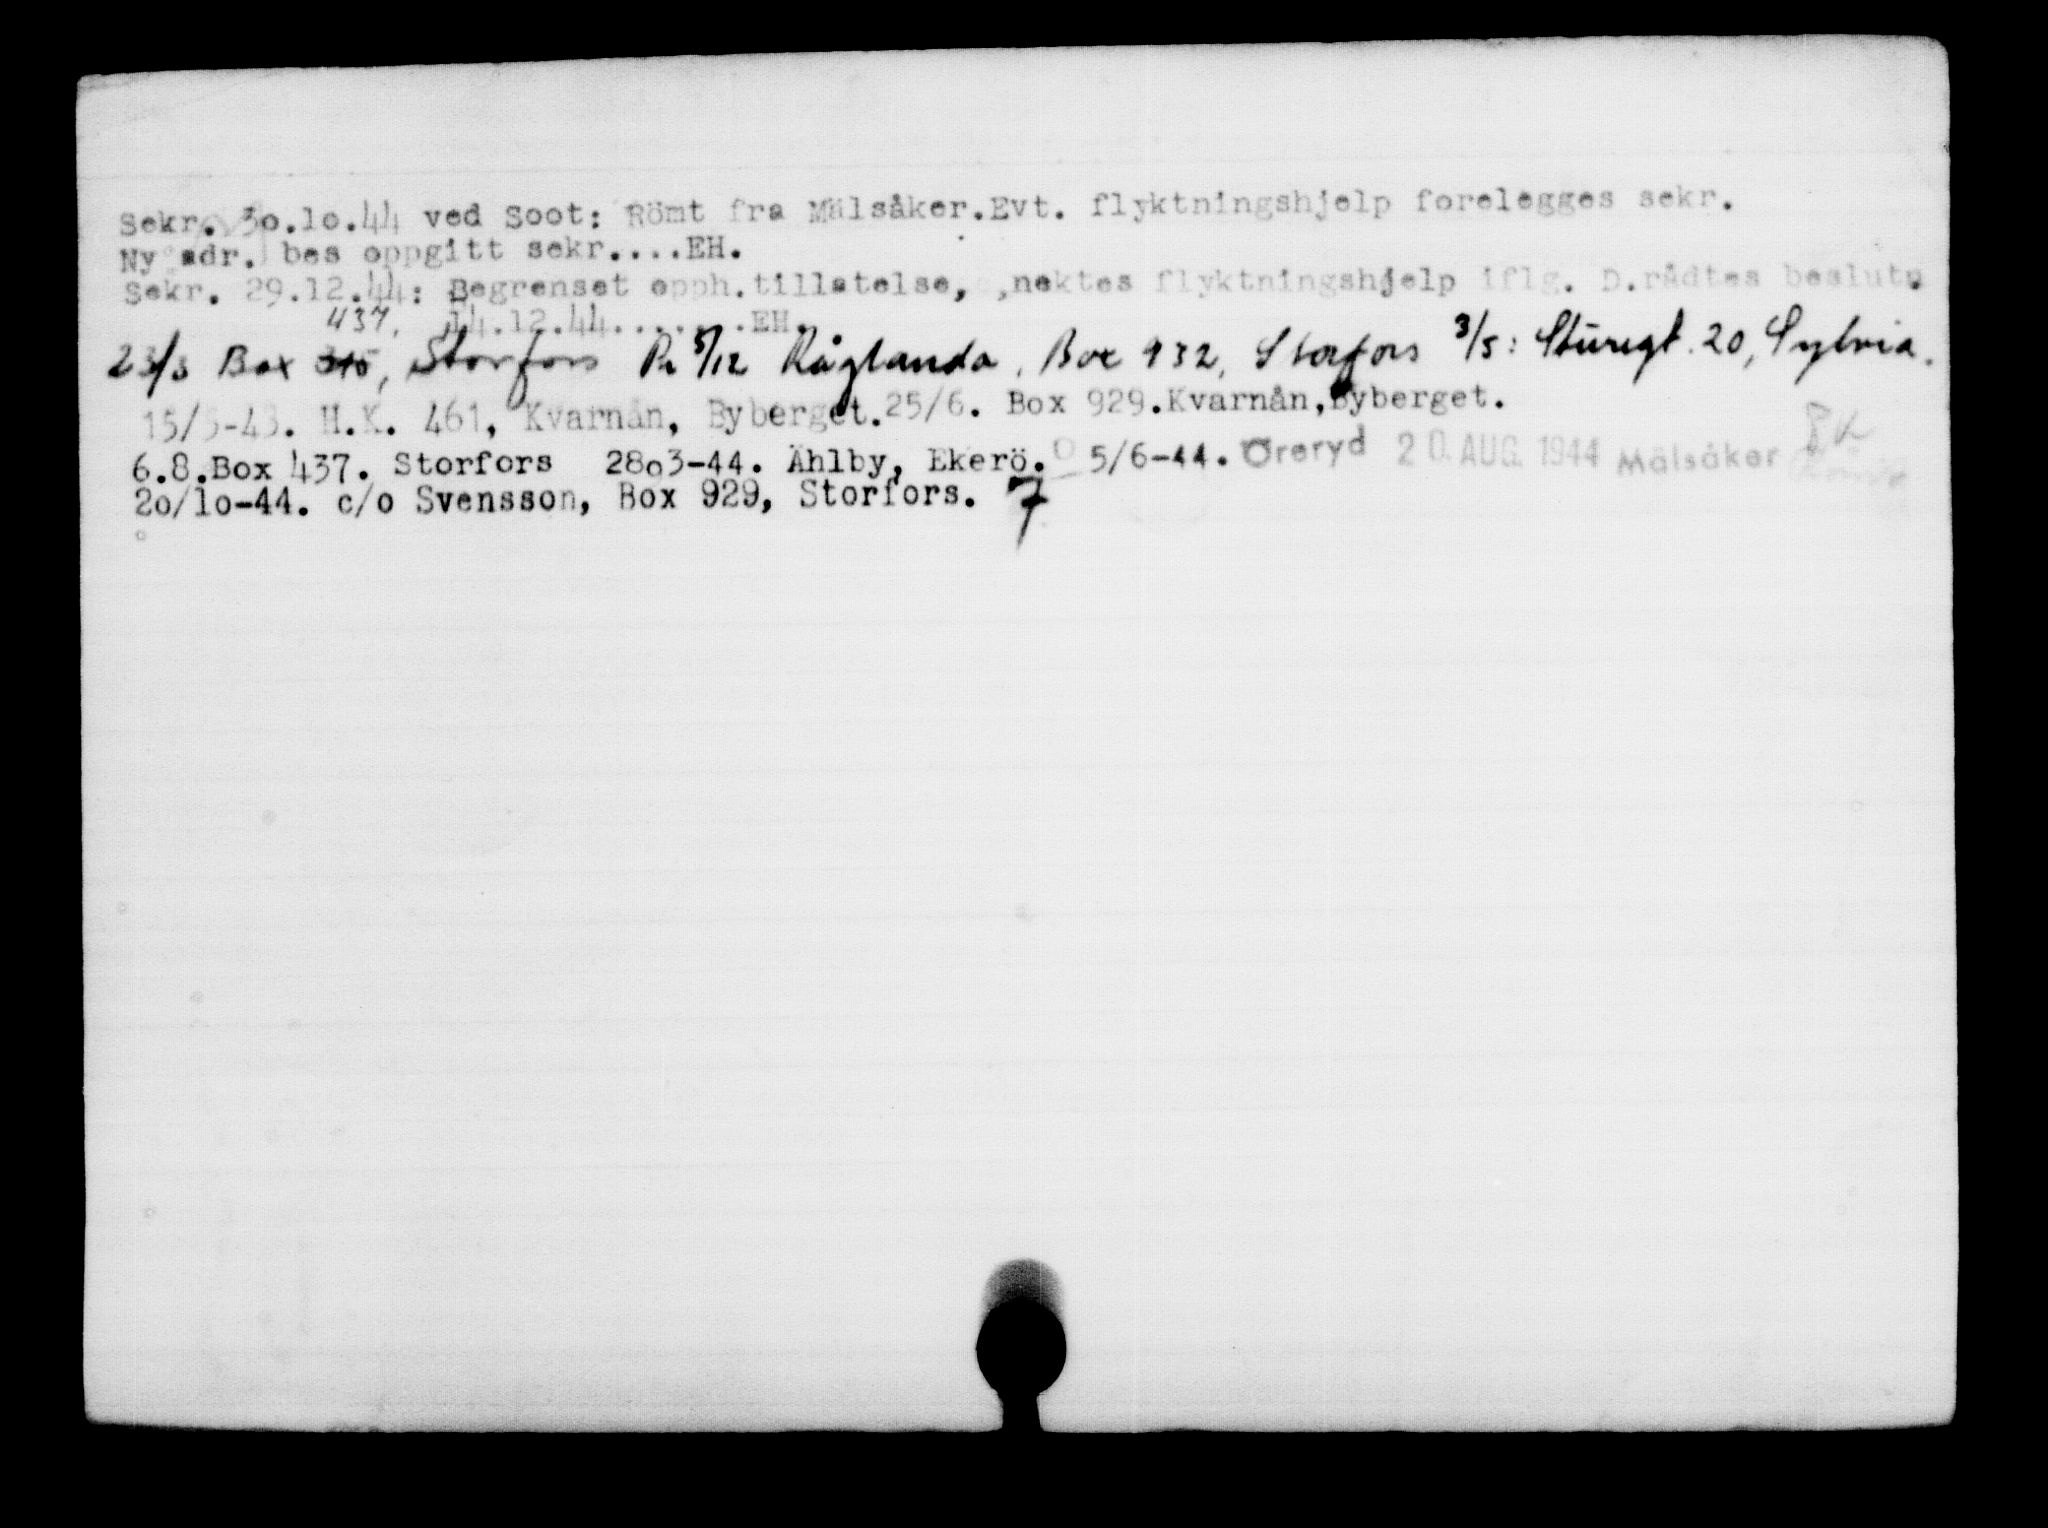 Sekr. 30.10.44 ved Soot: Römt fra Mälsåker.Evt. flyktningshjelp forelegges sekr.
Ny adr. bes oppgitt sekr....EH.
Sekr. 29.12.44: Begrenset opph.tillatelse, ,nektes flyktningshjelp iflg. D.rådtes beslutn
437. 14.12.44.......EH.
23/3 Box 345, Storfors Pr 5/12 Råglanda, Box 932, Storfors 3/5: Sturegt. 20, Sylvia.
15/5-43. H.K. 461, Kvarnån, Byberget. 25/6. Box 929.Kvarnån,Byberget.
6.8.Box 437. Storfors 28o3-44. Ählby, Ekerö. 5/6-44. Öreryd 20. AUG. 1944 Mälsåker
2o/1o-44. c/o Svensson, Box 929, Storfors. 7